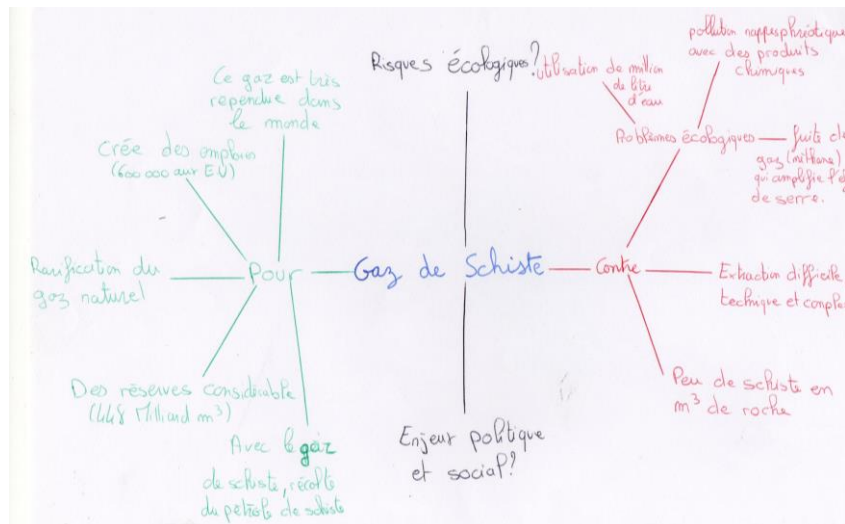 Ce gaz est très
rependue dans
le monde
Crée des emplois
(600 000 aux EU)
Rarification du
gaz naturel
Pour
Des réserves considérable
(448 Milliard m³)
Avec le gaz
de schiste, récolte
du petrole de schiste
Risques écologiques?
Gaz de Schiste
Enjeux politique
et social?
Contre
Problèmes écologiques
utilisation de million
de litre
d'eau
pollution
avec des produits
chimiques
fuite de
gaz (méthane)
qui amplifie l'e
de serre.
Extraction difficile
technique et comple
Peu de schiste en
m³ de roche